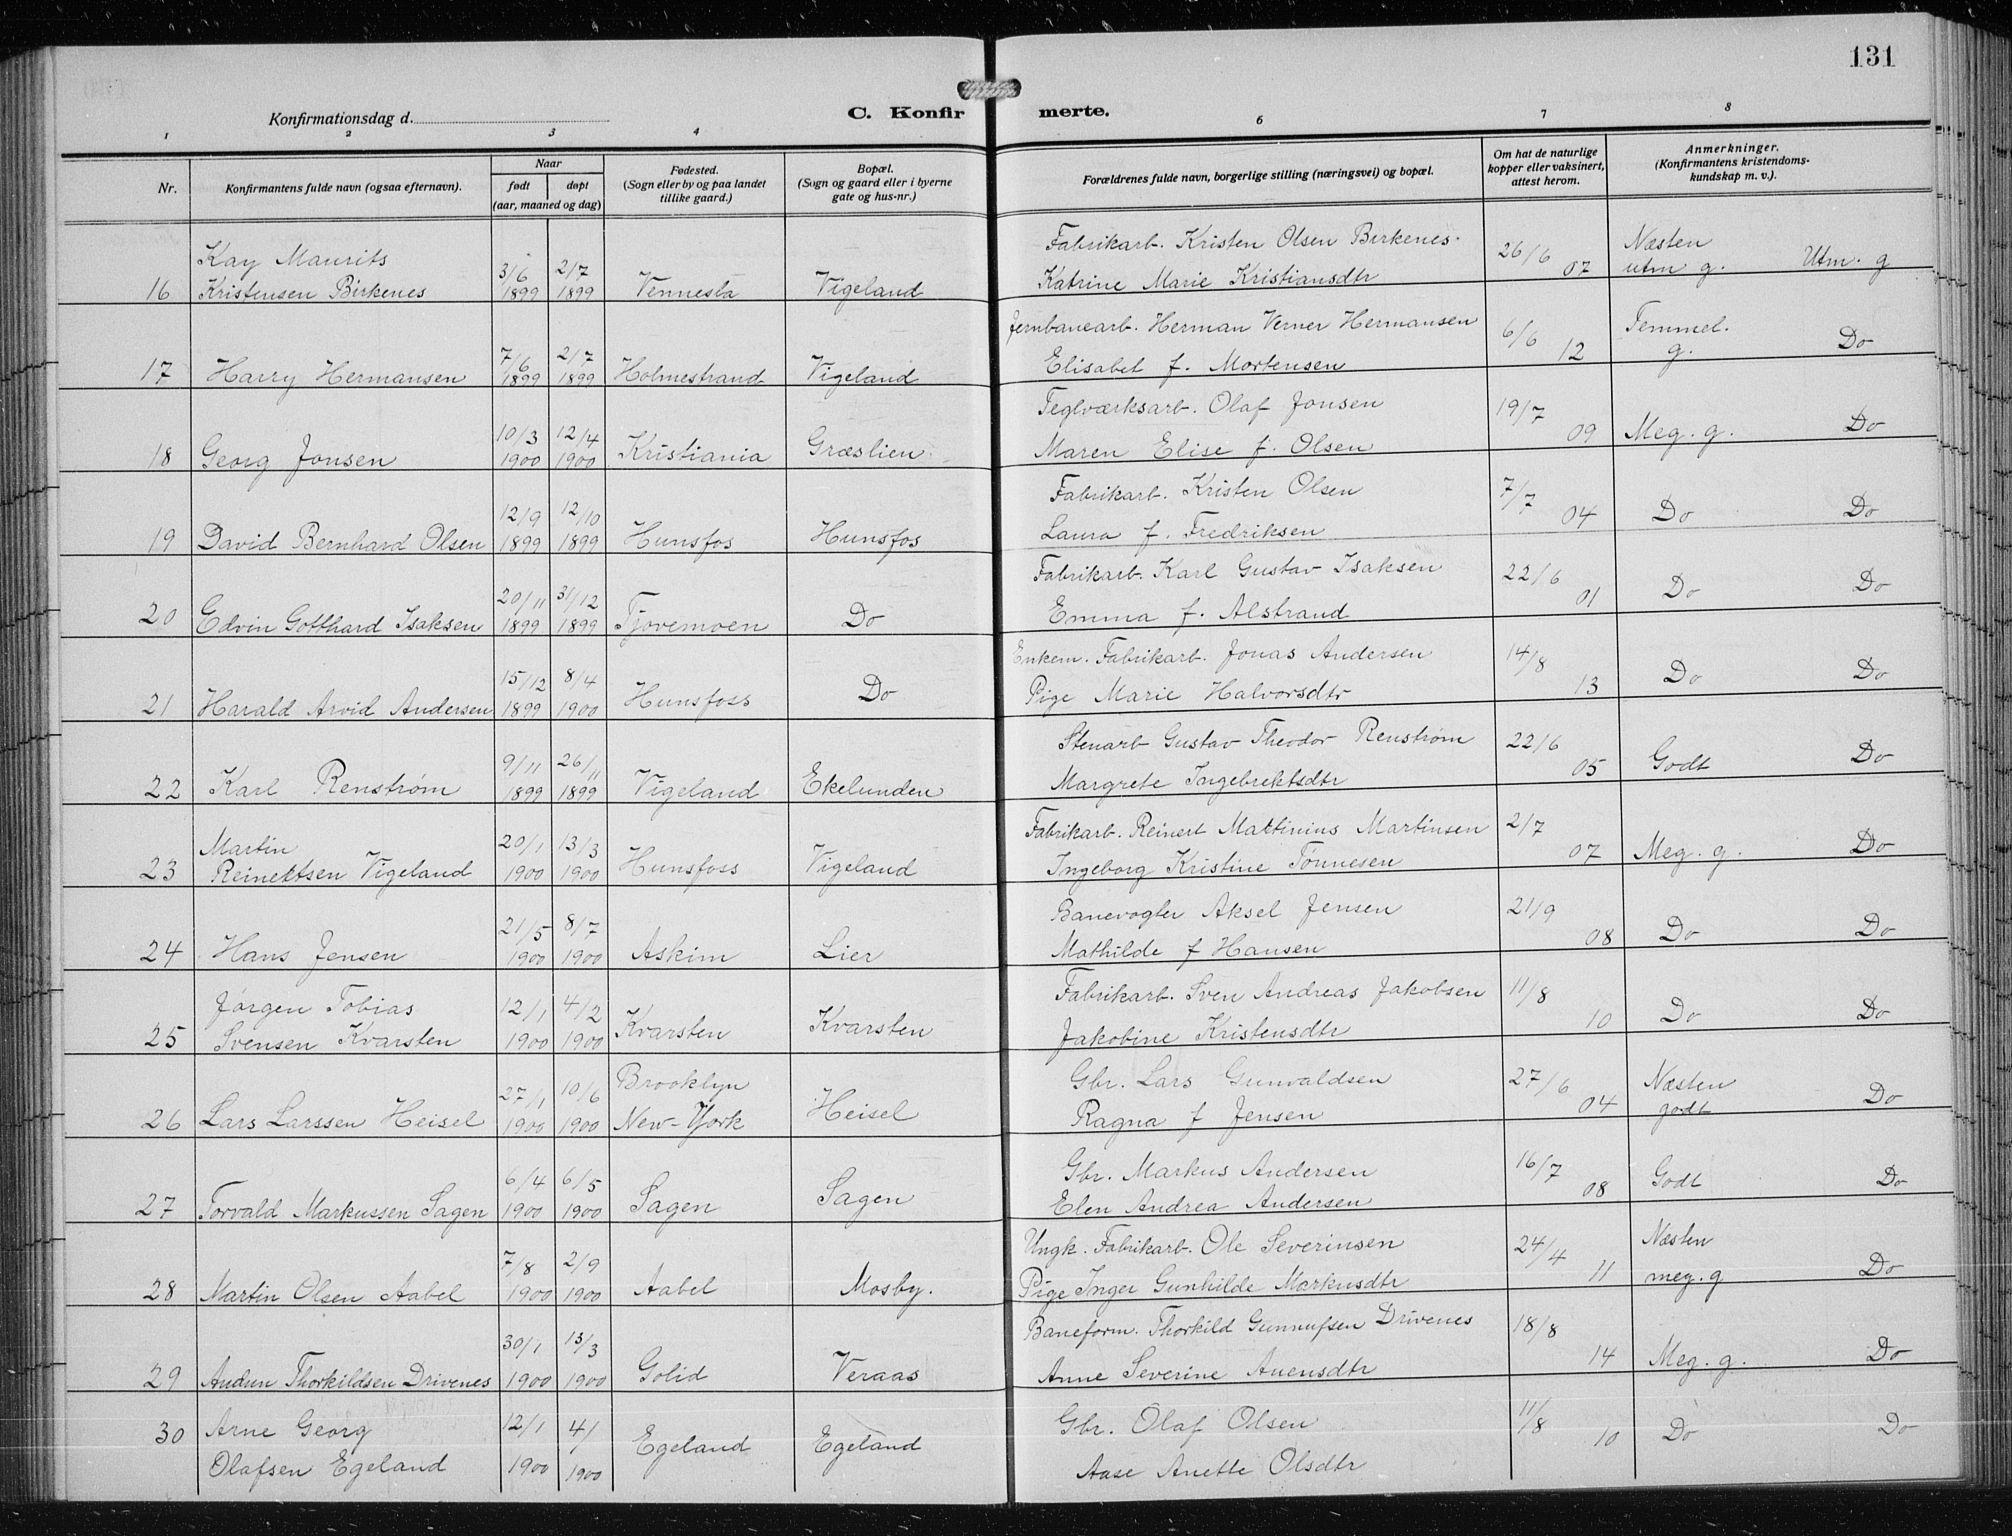 131
Konfirmationsdag d.
C. Konfirmerte.
1 2 3 4 5 6 7 8
Nr.
Konfirmantens fulde navn (ogsaa efternavn).
Naar
født
døpt
(aar, maaned og dag)
Fødested.
(Sogn eller by og paa landet
tillike gaard.)
Bopæl.
(Sogn og gaard eller i byerne
gate og hus-nr.)
Forældrenes fulde navn, borgerlige stilling (næringsvei) og bopæl.
Om hat de naturlige
kopper eller vaksinert,
attest herom.
Anmerkninger.
(Konfirmantens kristendoms-
kundskap m. v.).
Kay Maurits 3/6 2/7 Fabrikarb. Kristen Olsen Birkenes. 26/6 Næsten
16 Kristensen Birkenes 1899 1899 Vennesla Vigeland Katrine Marie Kristiansdtr 07 utm g. Utm. g
7/6 2/7 Jernbanearb. Herman Verner Hermansen 6/6 Temmel.
17 Harry Hermansen 1899 1899 Holmestrand Vigeland Elisabet f. Mortensen 12 g. Do
10/3 12/4 Teglværksarb. Olaf Jonsen 19/7
18 Georg Jonsen 1900 1900 Kristiania Græslien Maren Elise f. Olsen 09 Meg. g. Do
12/9 12/10 Fabrikarb. Kristen Olsen 7/7
19 David Bernhard Olsen 1899 1899 Hunsfos Hunsfos Laura f. Fredriksen 04 Do Do
20/11 31/12 Fabrikarb. Karl Gustav Isaksen 22/6
20 Edvin Gotthard Isaksen 1899 1899 Tjovemoen Do Emma f. Alstrand 01 Do Do
15/12 8/4 Enkem. Fabrikarb. Jonas Andersen 14/8
21 Harald Arvid Andersen 1899 1900 Hunsfoss Do Pige Marie Halvorsdtr 13 Do Do
9/11 26/11 Stenarb Gustav Theodor Renstrøm 22/6
22 Karl Renstrøm 1899 1899 Vigeland Ekelunden Margrete Ingebrektsdtr 05 Godt Do
Martin 20/1 13/3 Fabrikarb. Reinert Mattinius Martinsen 2/7
23 Reinertsen Vigeland 1900 1900 Hunsfoss Vigeland Ingeborg Kristine Tønnesen 07 Meg. g. Do
21/5 8/7 Banevogter Aksel Jensen 21/9
24 Hans Jensen 1900 1900 Askim Lier Mathilde f Hansen 08 Do Do
Jørgen Tobias 12/1 4/2 Fabrikarb. Sven Andreas Jakobsen 11/8
25 Svensen Kvarsten 1900 1900 Kvarsten Kvarsten Jakobine Kristensdtr 10 Do Do
27/1 10/6 Brooklyn Gbr. Lars Gunvaldsen 27/6 Næsten
26 Lars Larssen Heisel 1900 1900 New-York Heisel Ragna f Jensen 04 godt Do
6/4 6/5 Gbr. Markus Andersen 16/7
27 Torvald Markussen Sagen 1900 1900 Sagen Sagen Elen Andrea Andersen 08 Godt Do
7/8 2/9 Ungk. Fabrikarb. Ole Severinsen 24/4 Næsten
28 Martin Olsen Aabel 1900 1900 Aabel Mosby. Pige Inger Gunhilde Markusdtr 11 meg. g Do
30/1 13/3 Baneform. Thorkild Gunnufsen Drivenes 18/8
29 Audun Thorkildsen Drivenes 1900 1900 Golid Veraas Anne Severine Auensdtr 14 Meg. g. Do
30 Arne Georg 12/1 4/ Gbr. Olaf Olsen 11/8
Olafsen Egeland 1900 1900 Egeland Egeland Aase Anette Olsdtr 10 Do Do